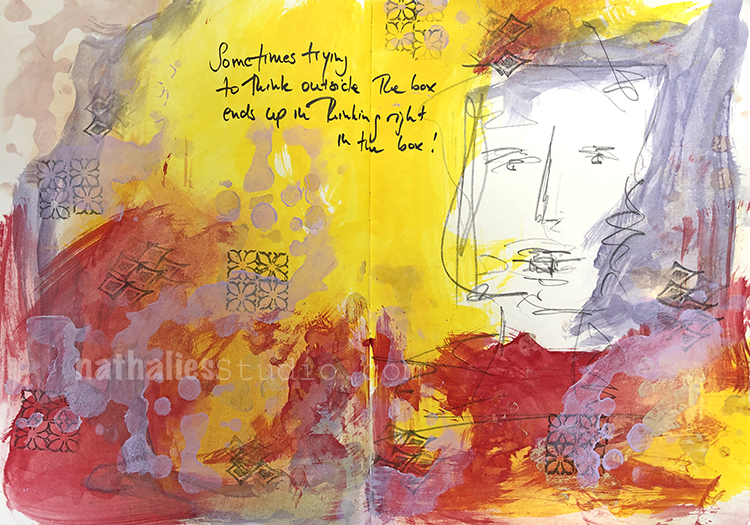 Sometimes trying
to think outside the box
ends up in thinking right
in the box!
nathaliesstudio.com